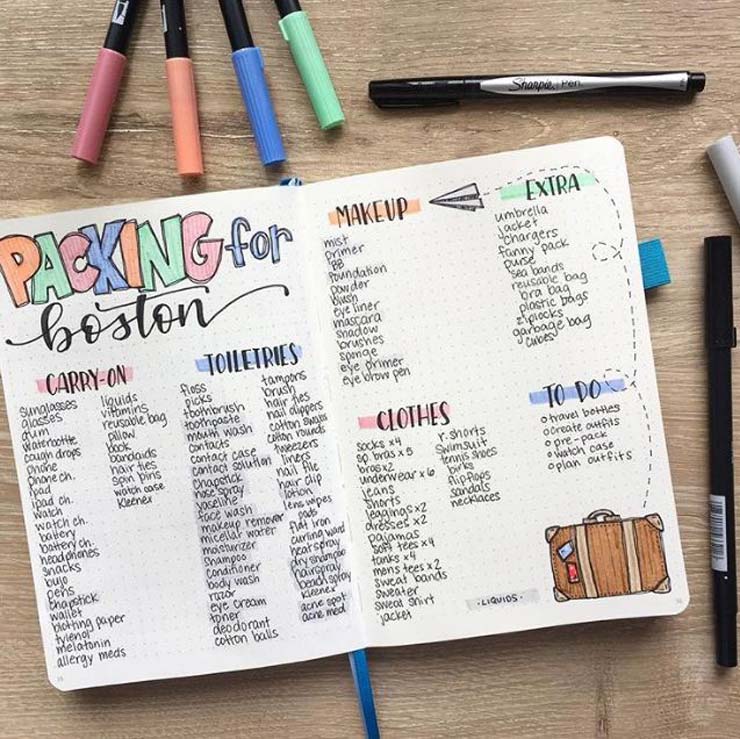 Sharpie. Pen.
PACKING for
boston
CARRY-ON
sunglasses
glasses
gum
waterbottle
cough drops
phone
phone ch.
ipad
ipad ch.
watch
watch ch.
battery
battery ch.
headphones
snacks
bujo
pens
chapstick
wallet
blotting paper
tylenol
melatonin
allergy meds
liquids
vitamins
reusable bag
pillow
book
bandaids
hair ties
spin pins
watch case
kleenex
TOILETRIES
floss
picks
toothbrush
toothpaste
mouth wash
contacts
contact case
contact solution
chapstick
nose spray
vaseline
face wash
makeup remover
micellar water
moisturizer
shampoo
conditioner
body wash
razor
eye cream
toner
deodorant
cotton balls
tampons
brush
hair ties
nail clippers
cotton swabs
cotton rounds
tweezers
liners
nail file
hair clip
lotion
lens wipes
pads
flat iron
curling wand
heat spray
dry shampoo
hairspray
beach spray
kleenex
acne spot
acne med.
MAKEUP
mist
primer
BB
foundation
powder
blush
eye liner
mascara
shadow
brushes
sponge
eye primer
eye brow pen
EXTRA
umbrella
jacket
chargers
fanny pack
purse
sea bands
reusable bag
bra bag
plastic bags
ziplocks
garbage bag
cubes
CLOTHES
socks x4
sp. bras x5
bras x2
underwear x6
jeans
shorts
leggings x2
dresses x2
pajamas
soft tees x4
tanks x4
mens tees x2
sweat bands
sweater
sweat shirt
jacket
r. shorts
swimsuit
tennis shoes
birks
flipflops
sandals
necklaces
TO DO
o travel bottles
o create outfits
o pre-pack
o watch case
o plan outfits
·LIQUIDS·